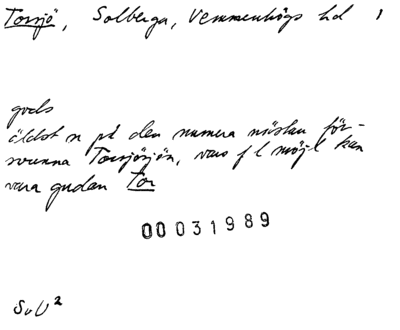 Torsjö, Solberga, Vemmenhögs hd 1
gods
äldst n på den numera nästan för-
svunna Torsjösjön, vars f l möjl kan
vara gudan Tor
00031989
SvU²